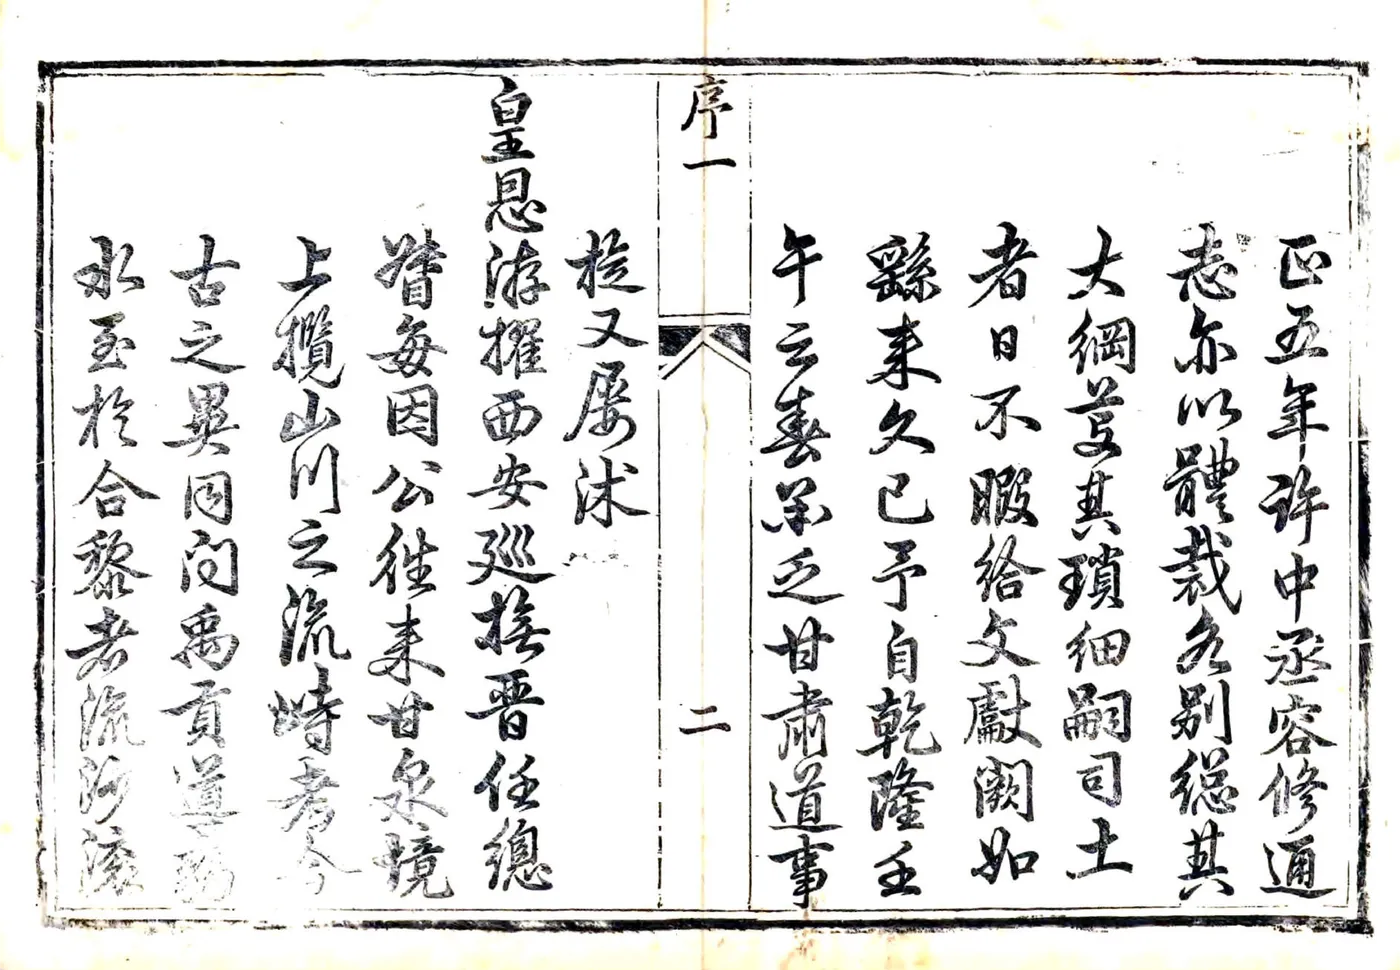 正五年許中丞容修通
志亦以體裁各別總其
大綱芟其瑣細嗣司土
者日不暇給文獻闕如
繇来久已予自乾隆壬
午之春承乏甘肅道事
序一
二
旋又屡沐
皇恩游擢西安廵撫晋任總
督每因公往来甘泉境
上攬山川之流峙考今
古之異同問禹貢道弱
水至於合黎者流沙滾